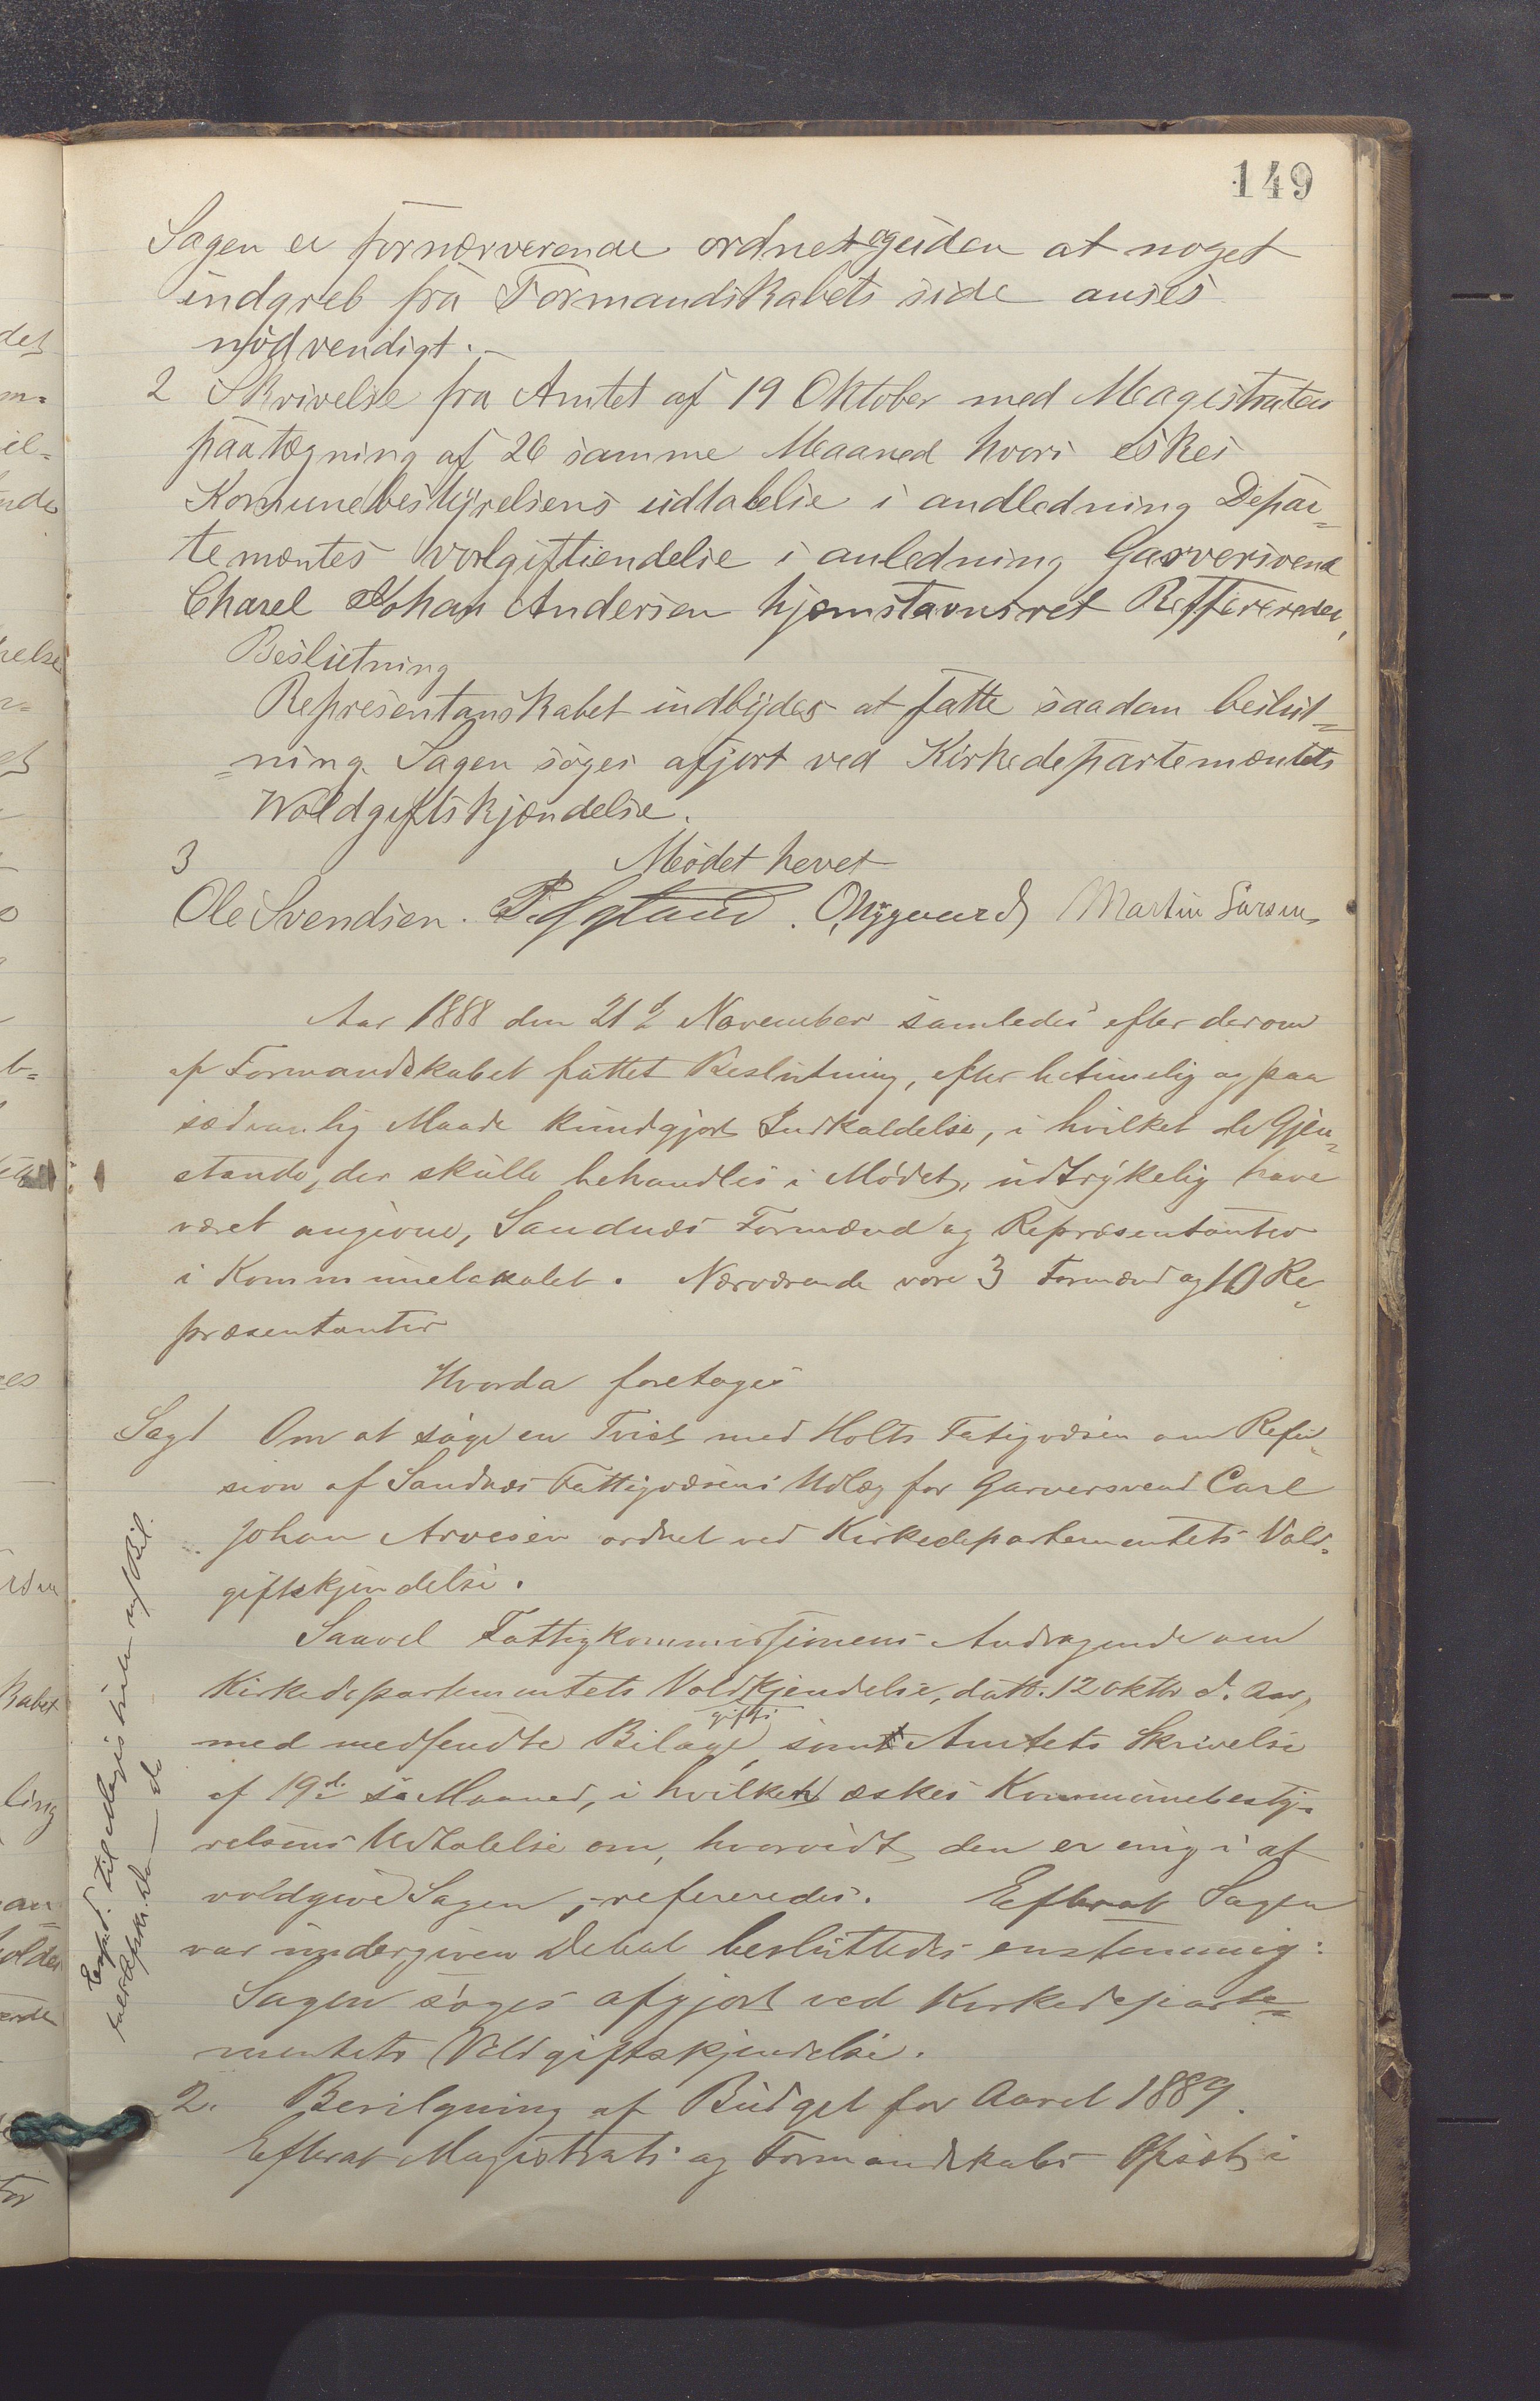 149
Sagen er fornærverende ordnet og uden at noget
indgreb fra Formandskabets side anses
nødvendigt.-
2 Skrivelse fra Amtet af 19 Oktober med Magistratens
paategning af 26 samme Maaned hvori eskes
Komunebestyrelsens udtalelse i andledning Depar=
temæntes volgiftiendelse i anledning Garversvend
Charel Johan Andersen hjemstavnsret Reffereredes,
Beslutning
Representanskabet indbydes at fatte saadan beslut=
=ning. Sagen søges afjort ved Kirkedepartemæntets
Woldgiftskjøndelse.
3 Mødet hevet
Ole Svendsen. O. Nygaard Martin
Aar 1888 den 21d November samledes efter derom
af Formandskabet fattet Beslutning, efter betimelig og paa
sædvanlig Maade kundgjort Indkaldelse, i hvilket de Gjen=
stande, der skulle behandles i Mødet, udtrykelig have
været angivne, Sandnæs Formænd og Repræsentanter
i Kommunelokalet. Nærværende vare 3 Formænd og 10 Re=
præsentanter
Hvorda foretoges
Sag 1 Om at søge en Tvist med Holts Fatigvæsen om Refu=
sion af Sandnæs Fattigvæsens Udlæg for Garversvend Carl
Johan Arvesen ordnet ved Kirkedepartementets Vold=
giftskjendelse.
Saavel Fattigkommissionens Andragende om
Kirkedepartementets Voldgiftskjendelse, datt. 12 oktbr d. Aar,
med medsendte Bilage, samt Amtets Skrivelse
af 19d. s. Maaned, i hvilken æskes Kommunebesty=
relsens Udtalelse om, hvorvidt den er enig i at
voldgive Sagen, - refereredes. Efterat Sagen
var undergiven Debat besluttedes enstemmig:
Sagen søges afgjort ved Kirkedeparte=
mentets Voldgiftskjendelse.
2. Bevilgning af Budget for Aaret 1889.
Efterat Magistrats og Formandskabs Opsæt i